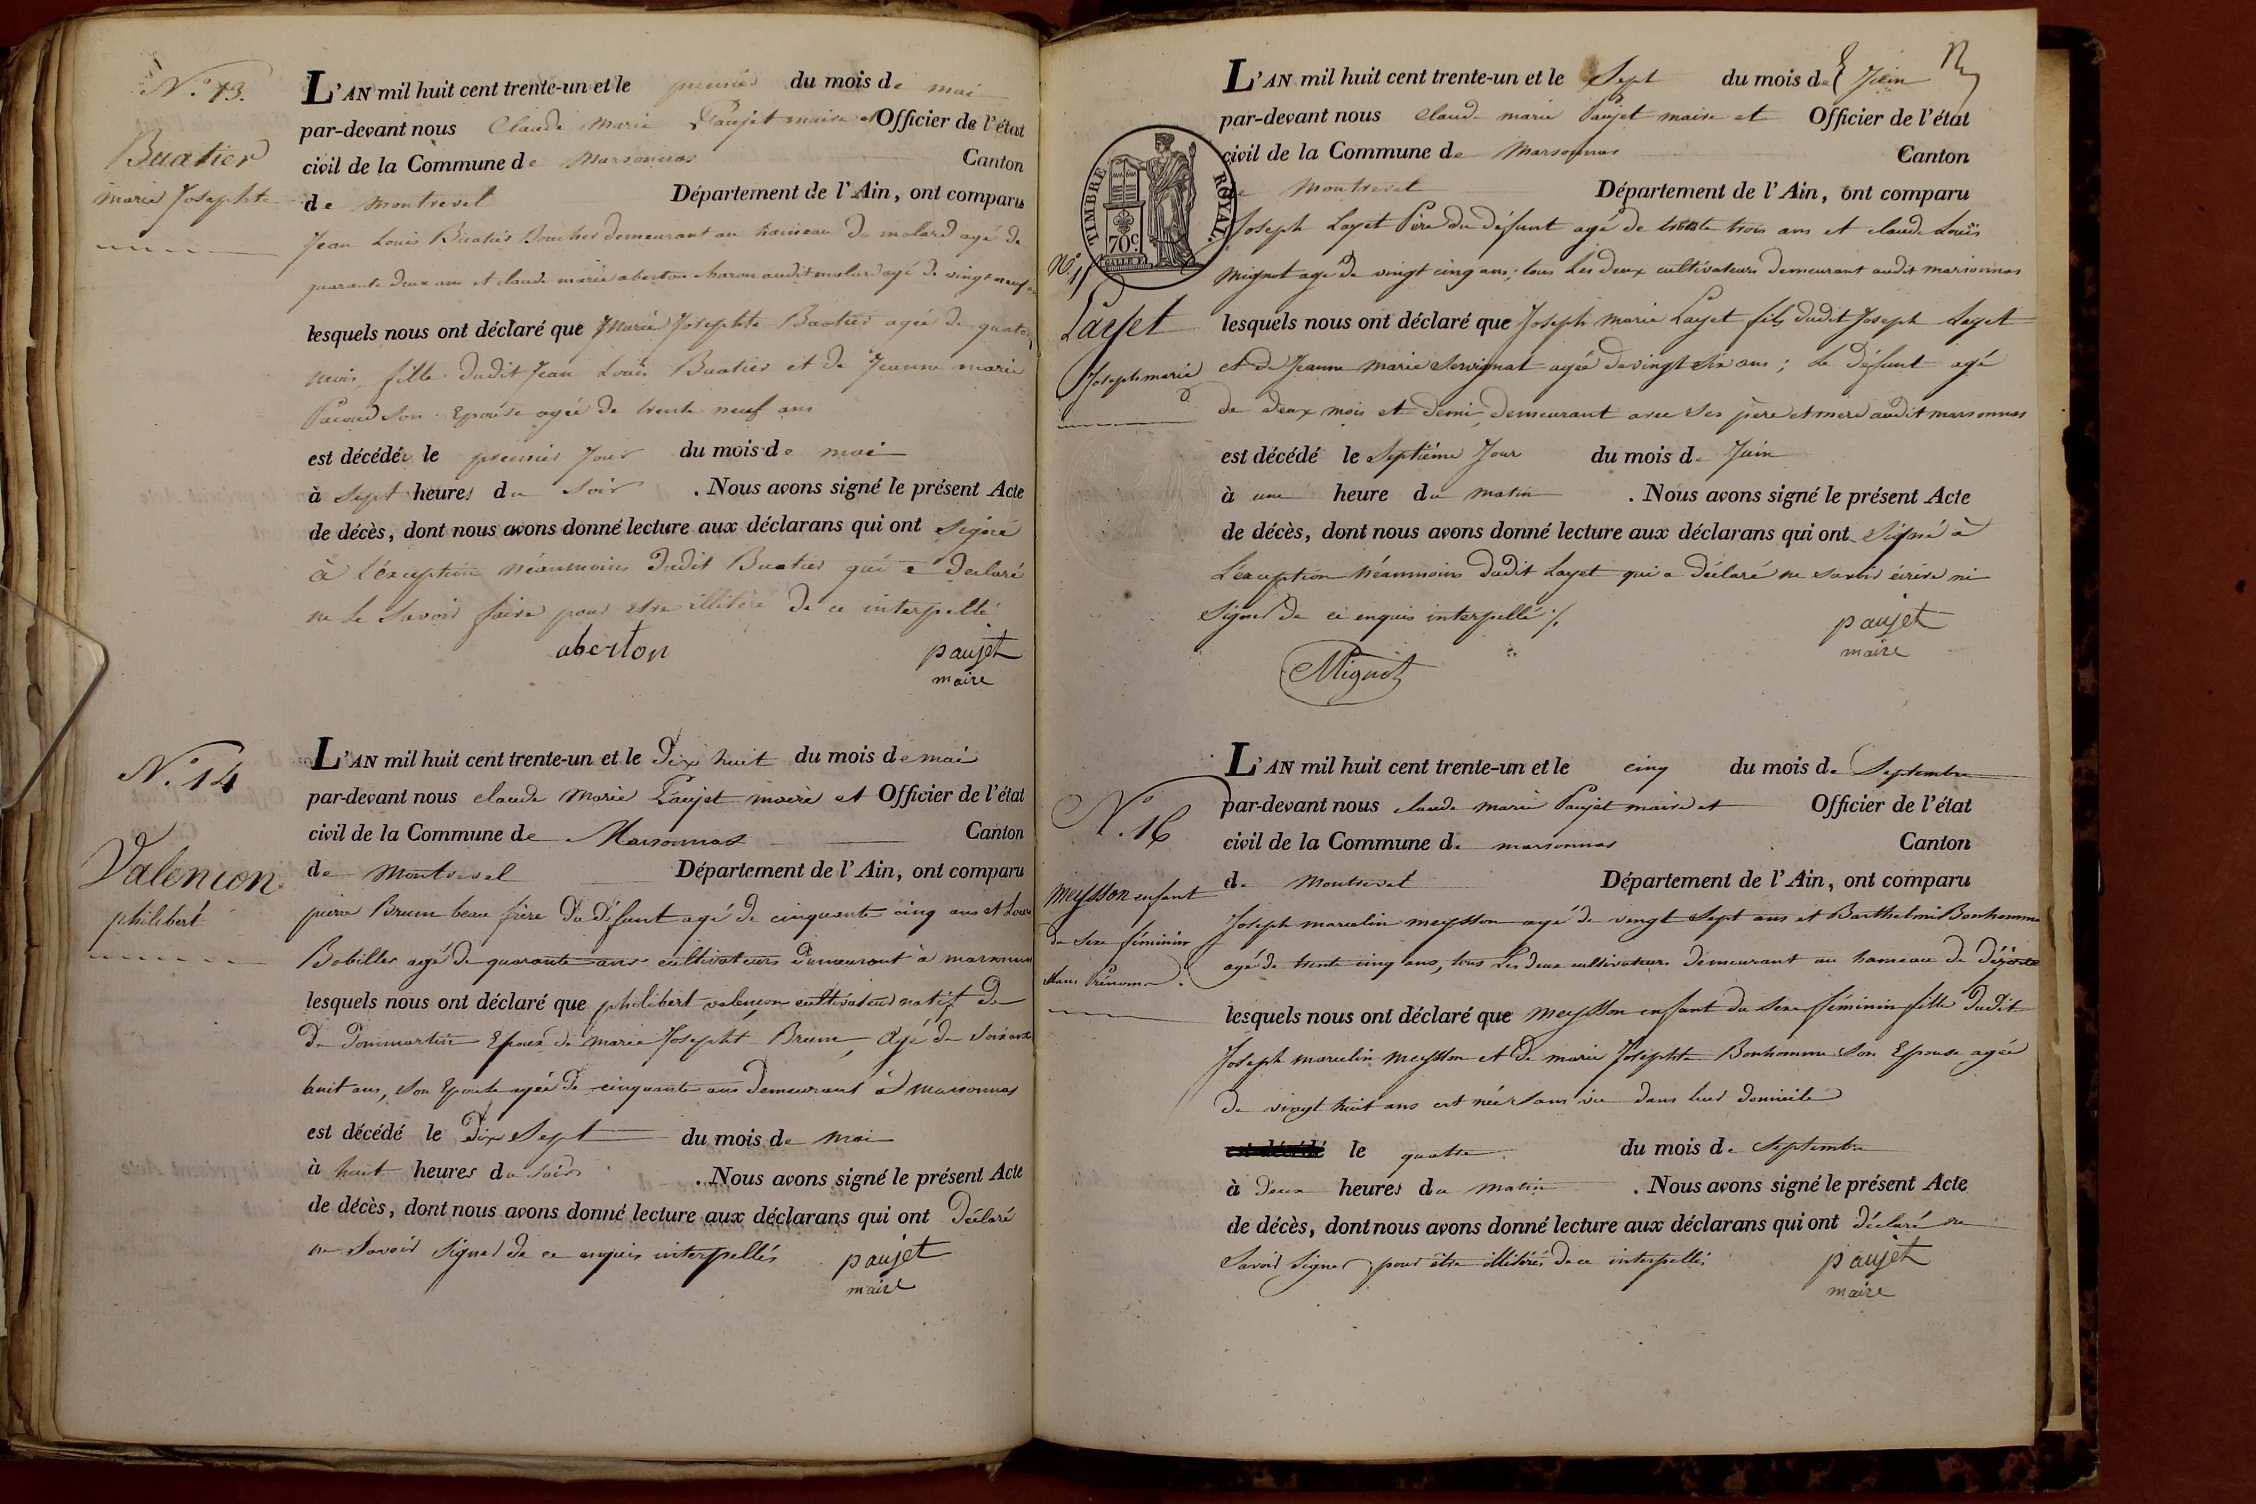 N.° 13.
Buatier
marie Josephte
L'AN mil huit cent trente-un et le premier du mois de mai
par-devant nous Claude Marie Paujet maire et Officier de l'état
civil de la Commune de Marsonnas Canton
de Montrevel Département de l'Ain, ont comparu
Jean Louis Buatier Boucher demeurant au hameau du molard agé de
quarante deux ans et claude marie aberton charon audit molard agé de vingt neuf
lesquels nous ont déclaré que Marie Josephte Buatier agée de quatorze
mois fille dudit Jean Louis Buatier et de Jeanne marie
Pacoud son Epouse agée de trente neuf ans
est décédée le premier Jour du mois de mai
à sept heures du soir . Nous avons signé le présent Acte
de décès, dont nous avons donné lecture aux déclarans qui ont signé
à L'éxception néanmoins dudit Buatier qui a declaré
ne le savoir faire pour etre illitéré de ce interpellé
aberton paujet
maire
N.° 14
Valencon
philibert
L'AN mil huit cent trente-un et le dix huit du mois de mai
par-devant nous claude Marie Paujet maire et Officier de l'état
civil de la Commune de Marsonnas Canton
de Montrevel Département de l'Ain, ont comparu
pierre Brun beau frère du défunt agé de cinquante cinq ans et Louis
Bobillez agé de quarante ans cultivateurs demeurant à marsonnas
lesquels nous ont déclaré que philibert valençon cultivateur natif de
de Dommartin Epoux de marie Josepht Brun, Agé de soixante
huit ans, son Epouse agée de cinquante ans demeurant à marsonnas
est décédé le dix sept du mois de mai
à huit heures du soir . Nous avons signé le présent Acte
de décès, dont nous avons donné lecture aux déclarans qui ont déclaré
ne savoir signer de ce enquis interpellés paujet
maire
TIMBRE ROYAL.
70c
N.° 15
Layet
Joseph marie
L'AN mil huit cent trente-un et le Sept du mois de Juin
par-devant nous claude marie Paujet maire et Officier de l'état
civil de la Commune de Marsonnas Canton
de Montrevel Département de l'Ain, ont comparu
Joseph Layet Père du défunt agé de trente trois ans et claude Louis
mignot agé de vingt cinq ans; tous les deux cultivateurs demeurant audit marsonnas
lesquels nous ont déclaré que Joseph Marie Layet fils dudit Joseph Layet
et de Jeanne Marie Servignat agée de vingt six ans; Le défunt agé
de deux mois et demi, demeurant avec ses père et mere audit marsonnas
est décédé le Septième Jour du mois de Juin
à une heure du matin . Nous avons signé le présent Acte
de décès, dont nous avons donné lecture aux déclarans qui ont Signé à
L'exception néanmoins dudit Layet qui a déclaré ne savoir écrire ni
signer de ce enquis interpellé ./. paujet
maire
Mignot
N.° 16
meysson enfant
du sexe féminin
sans Prénom.
L'AN mil huit cent trente-un et le cinq du mois de Septembre
par-devant nous claude marie Paujet maire et Officier de l'état
civil de la Commune de marsonnas Canton
de Montrevel Département de l'Ain, ont comparu
Joseph marcelin meysson agé de vingt sept ans et Barthelmi Bonhomme
agé de trente cinq ans, tous les deux cultivateurs demeurant au hameau de
lesquels nous ont déclaré que meysson enfant du sexe féminin fille dudit
Joseph marcelin meysson et de marie Josephte Bonhomme son Epouse agée
de vingt huit ans est née sans vie dans leur domicile
est décédé le quatre du mois de Septembre
à deux heures du matin . Nous avons signé le présent Acte
de décès, dont nous avons donné lecture aux déclarans qui ont déclaré ne
savoir signer pour être illitérés de ce interpellés paujet
maire